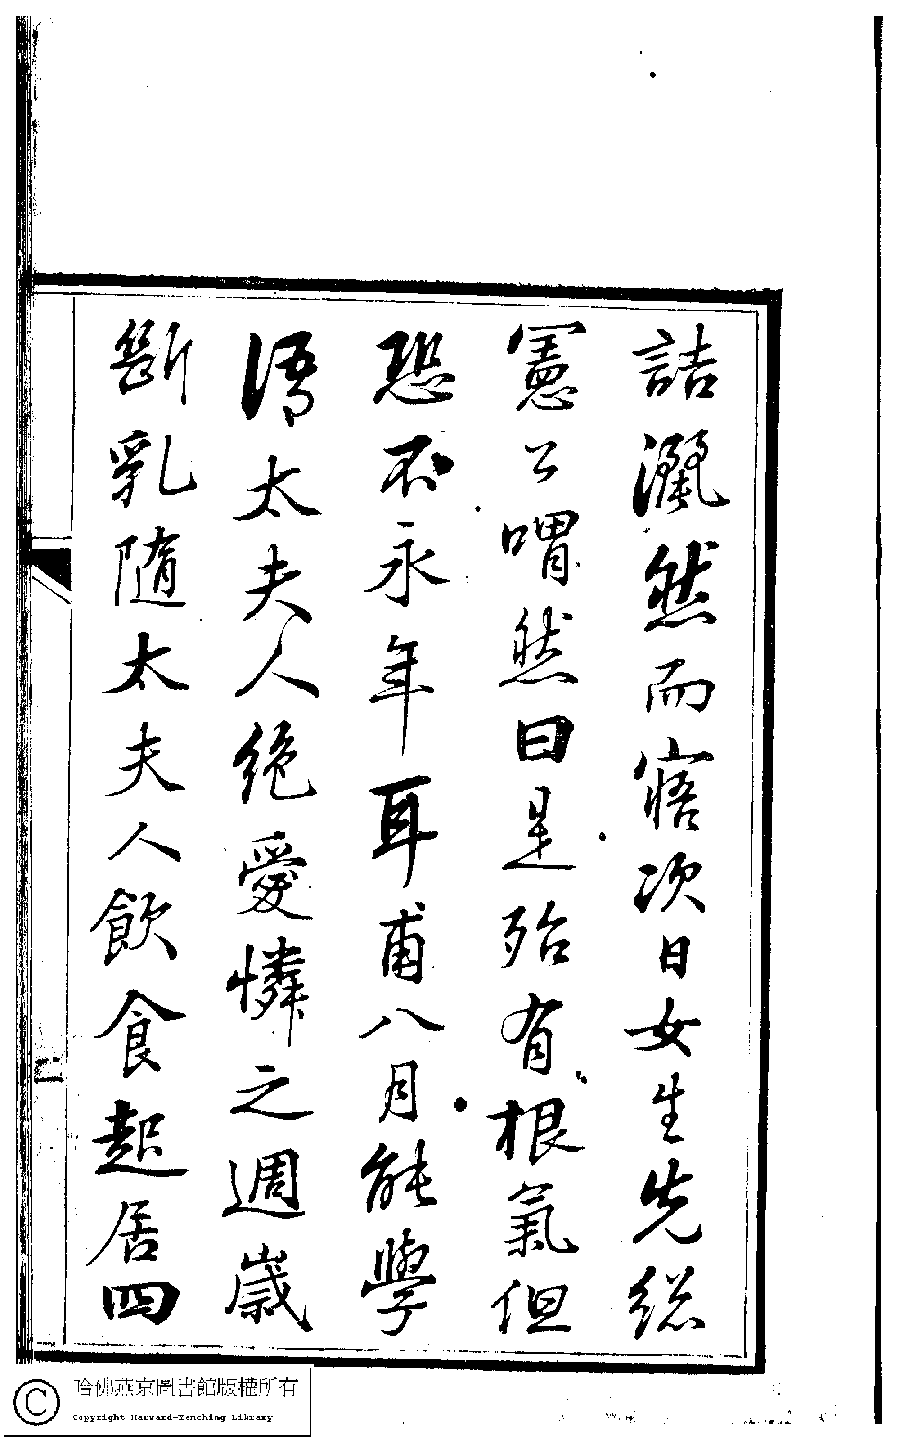 詰灑然而寤次日女生先總
憲公喟然曰是殆有根氣但
恐不永年耳甫八月能學
語太夫人絕愛憐之週歲
斷乳随太夫人飲食起居四
哈佛燕京圖書館版權所有
Copyright Harvard-Yenching Library